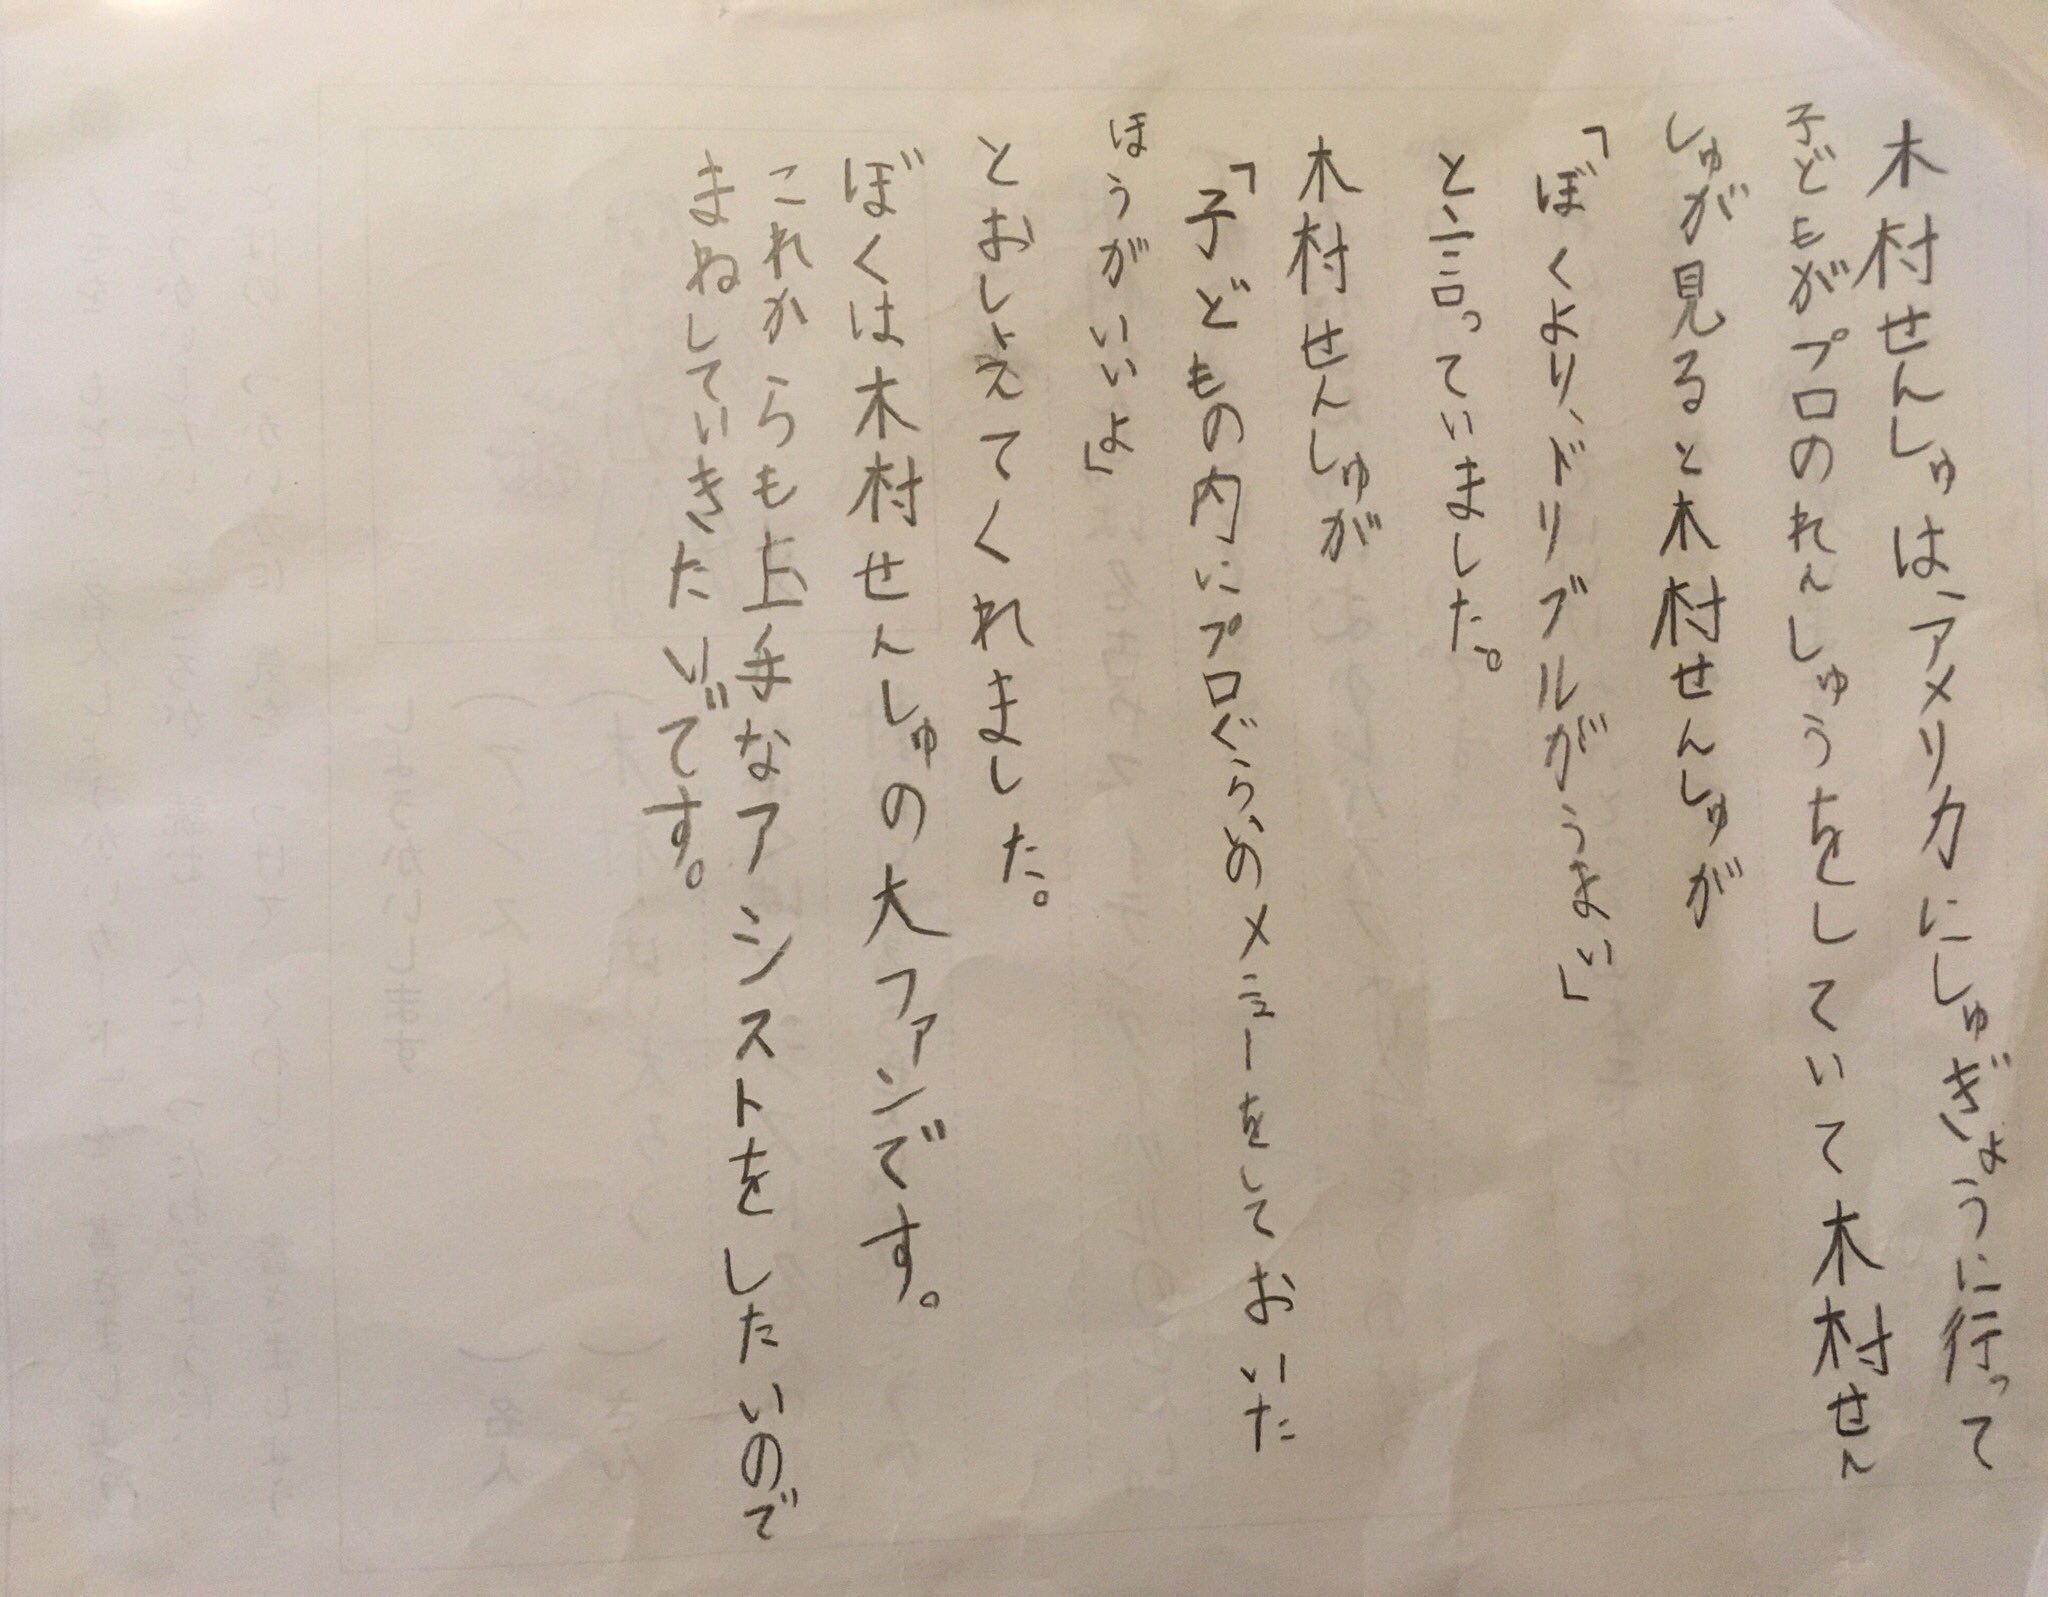 木村せんしゅは、アメリカにしゅぎょうに行って
子どもがプロのれんしゅうをしていて木村せん
しゅが見ると木村せんしゅが
「ぼくより、ドリブルがうまい」
と言っていました。
木村せんしゅが
「子どもの内にプロぐらいのメニューをしておいた
ほうがいいよ」
とおしえてくれました。
ぼくは木村せんしゅの大ファンです。
これからも上手なアシストをしたいので
まねしていきたいです。